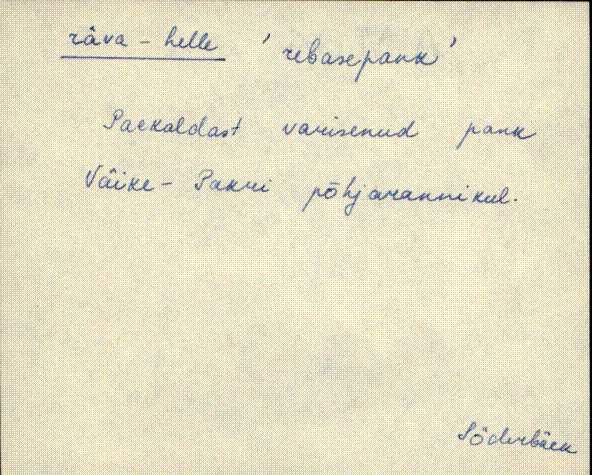 räva - helle 'rebasepank'
Paekaldast varisenud pank
Väike - Pakri põhjarannikul.
Söderbäck